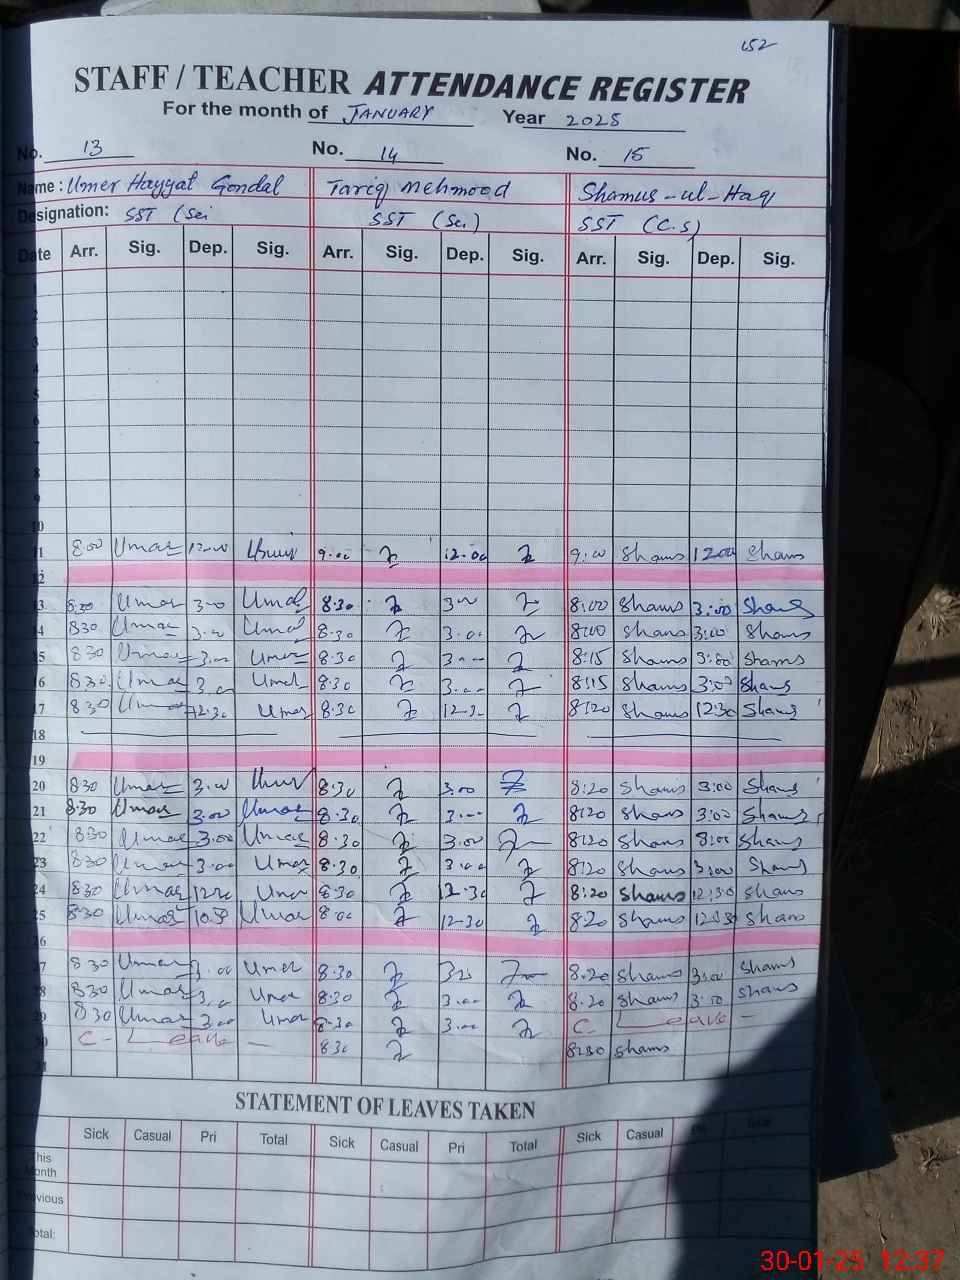 152
STAFF / TEACHER ATTENDANCE REGISTER
For the month of JANUARY Year 2025
No. 13 No. 14 No. 15
Name : Umer Hayyat Gondal Tariq Mehmood Shamus-ul-Haq
Designation: SST (Sci SST (Sci) SST (C.S)
Date Arr. Sig. Dep. Sig. Arr. Sig. Dep. Sig. Arr. Sig. Dep. Sig.
2
3
4
5
6
7
8
9
10
11 8:00 Umar 12:00 9:00 12:00 9:00 Shams 12:00 Shams
12
13 8:30 Umar 3:00 Umar 8:30 3:00 8:00 Shams 3:00 Shams
14 830 Umar 3:00 Umar 8:30 3:00 8:00 Shams 3:00 Shams
15 830 Umar 3:00 Umar 8:30 3:00 8:15 Shams 3:00 Shams
16 830 Umar 3:00 Umar 8:30 3:00 8:15 Shams 3:00 Shams
17 830 12:30 Umar 8:30 12-30 8:20 Shams 12:30 Shams
18
19
20 830 Umar 3:00 8:30 3:00 8:20 Shams 3:00 Shams
21 8:30 Umar 3:00 Umar 8:30 3:00 8:20 Shams 3:00 Shams
22 830 Umar 3:00 Umar 8:30 3:00 8:20 Shams Shams
23 830 Umar 3:00 Umar 8:30 3:00 8:20 Shams 3:00 Shams
24 830 Umar Umar 8:30 12:30 8:20 Shams 12:30 Shams
25 8:30 Umar 10:30 Umar 8:00 12-30 8:20 Shams 12:30 Shams
26
27 830 Umar 3:00 Umer 8:30 8:20 Shams 3:00 Shams
28 830 Umar 3:00 Umar 8:30 3:00 8:20 Shams 3:00 Shams
29 830 Umar 3:00 Umar 8:30 3:00 C- Leave -
30 C- Leave - 8:30 8:30 Shams
31
STATEMENT OF LEAVES TAKEN
Sick Casual Pri Total Sick Casual Pri Total Sick Casual Pri Total
This Month
Previous
Total:
30-01-25 12:37